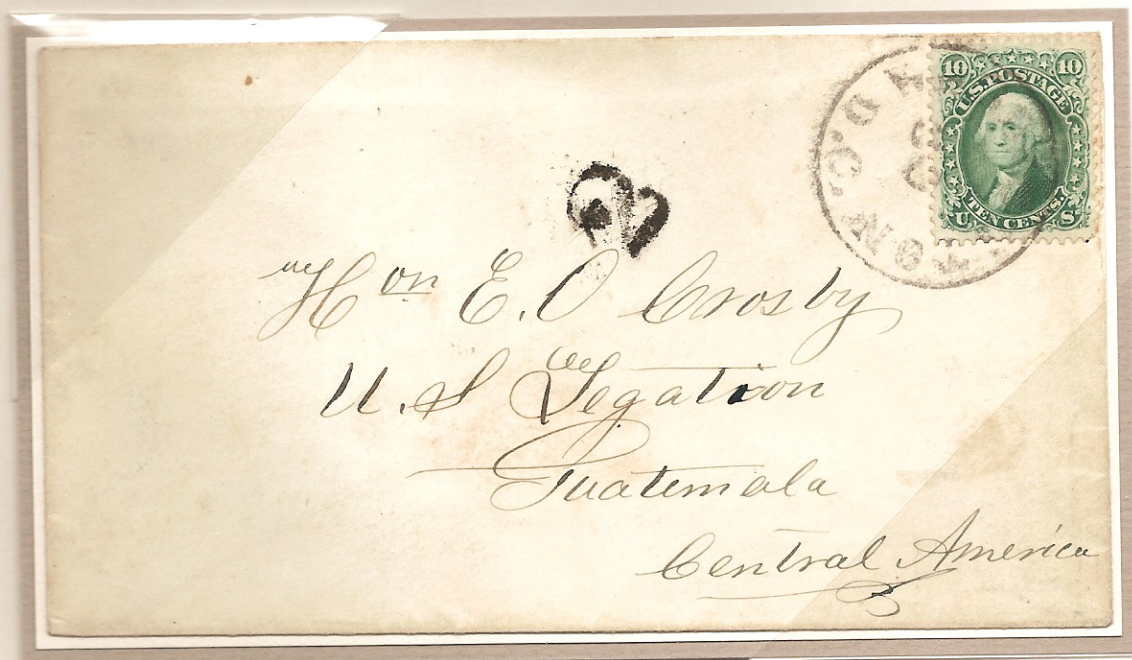 10 10
U.S. POSTAGE
TEN CENTS.
U S
D.C.
2
Hon E. O Crosby
U. S Legation
Guatemala
Central America